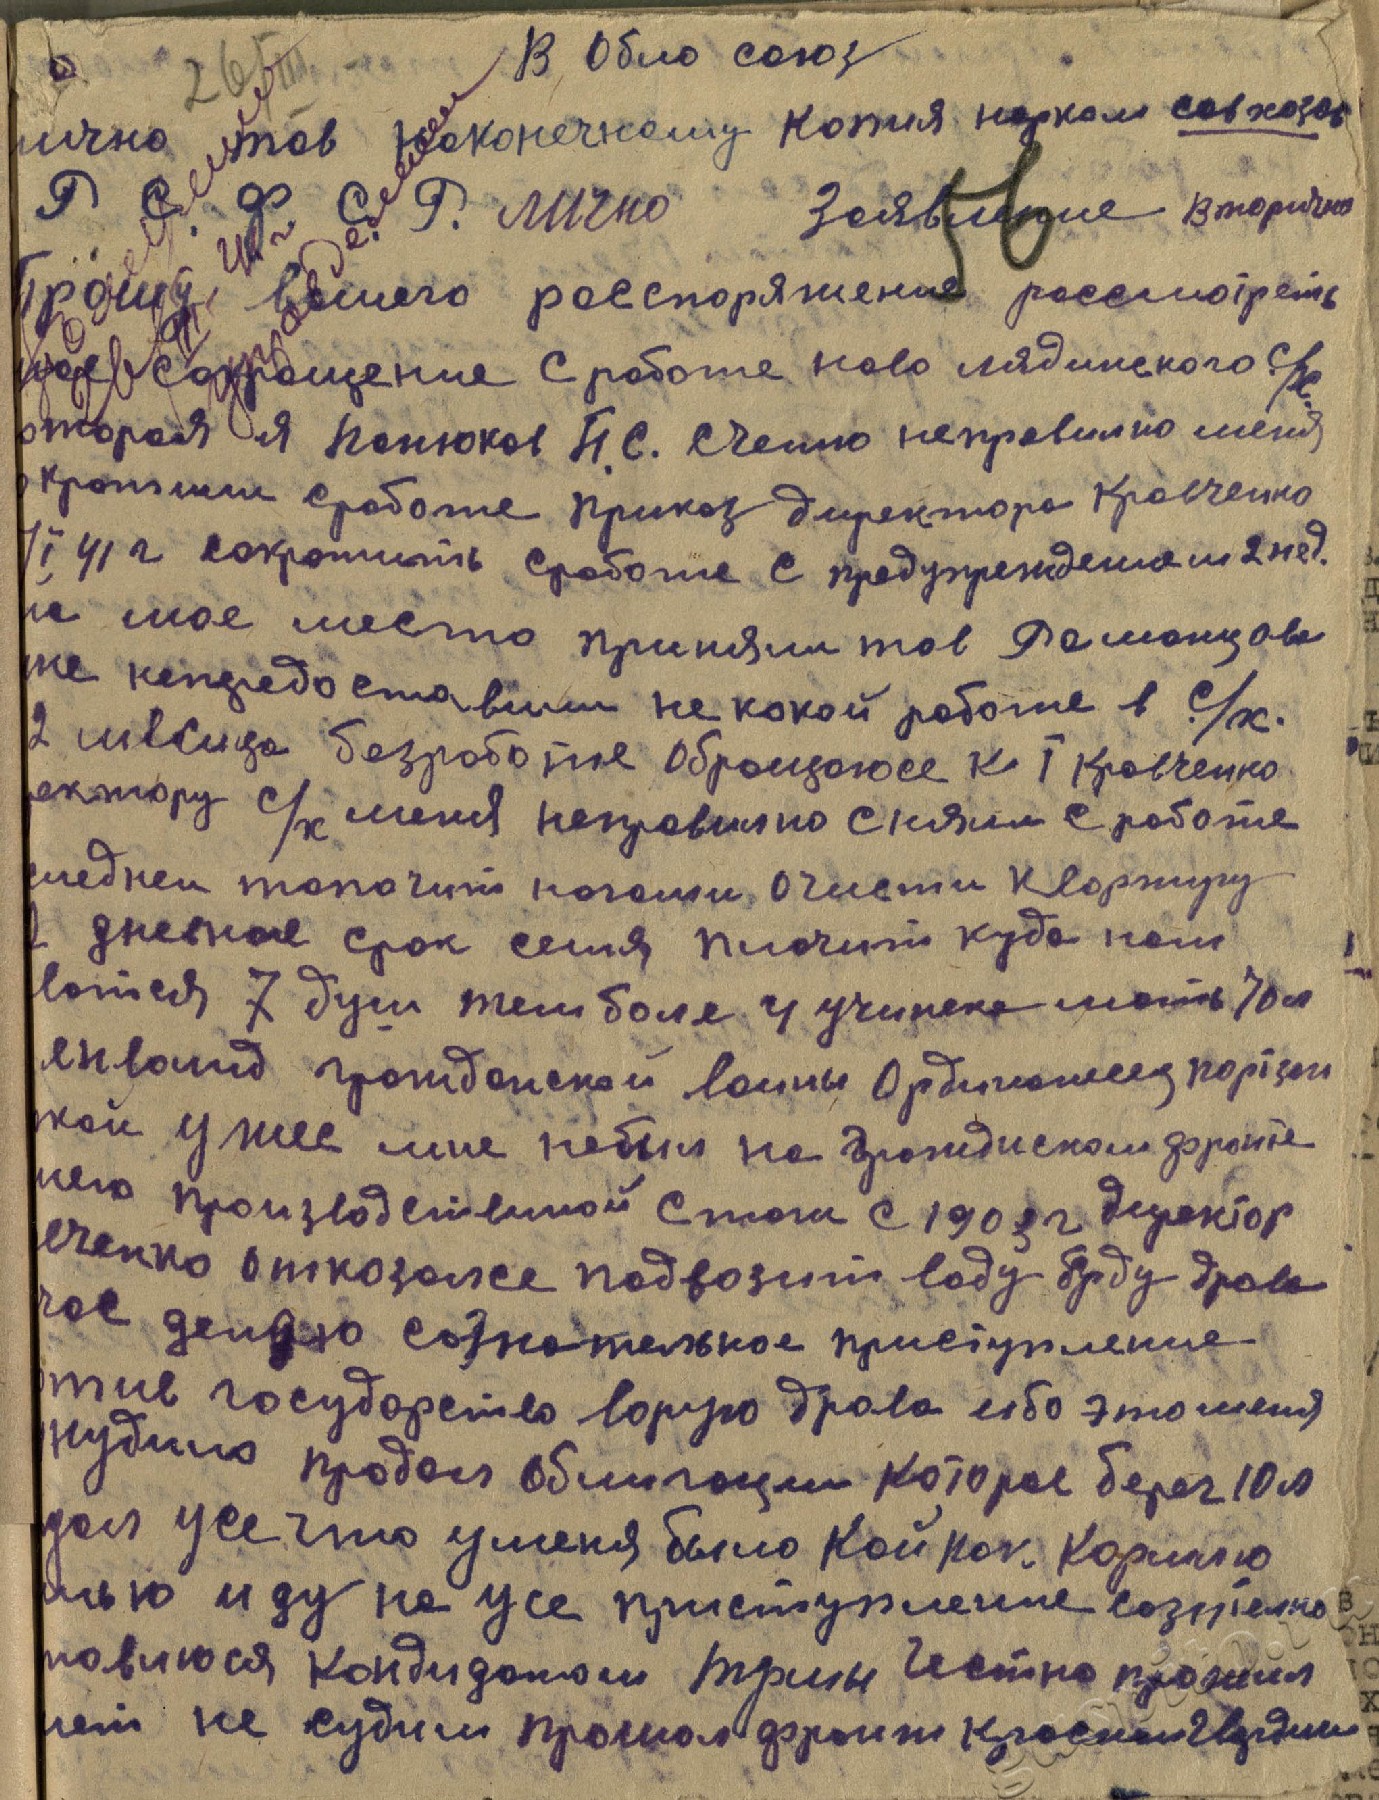 В Обло союз
лично тов наконечному Копия нарком совхозов
Р. С. Ф. С. Р. лично Заявление вторично
56
Прошу вашего росспоряжение россмотреть
мое сокрощение с работе ново лядинского с/х.
оторая я Панюков П.С. счетаю неправилно меня
окротили с работе приказ директора Кравченко
41 г сокротить с работе с предупреждением 2 нед.
на мое место приняли тов Романцова
же непредоставили не какой работе в с/х.
2 месица безработие обращаюсе к Кравченко
ектору с/х меня неправилно сняли с работе
следнеи топочит ногами очисти квортиру
2 дневное срок семя плочит куда нам
ватся 7 душ темболе 4 учинека мать 70 л
енвалид гражданской воины
кой уже мне небыл на фронте
него производствиной стаж с 1903 г директор
вченко отказалсе подвозит воду дрова
час делаю сознательное приступление
отив государство ворую дрова ибо это меня
нудило продал облигации которое берег 10 л
дал усе что у меня было Кормлю
мью иду на усе приступление
новлюся кондидатом трмы честно прожил
лет не судим прошол фронт красной гвардии